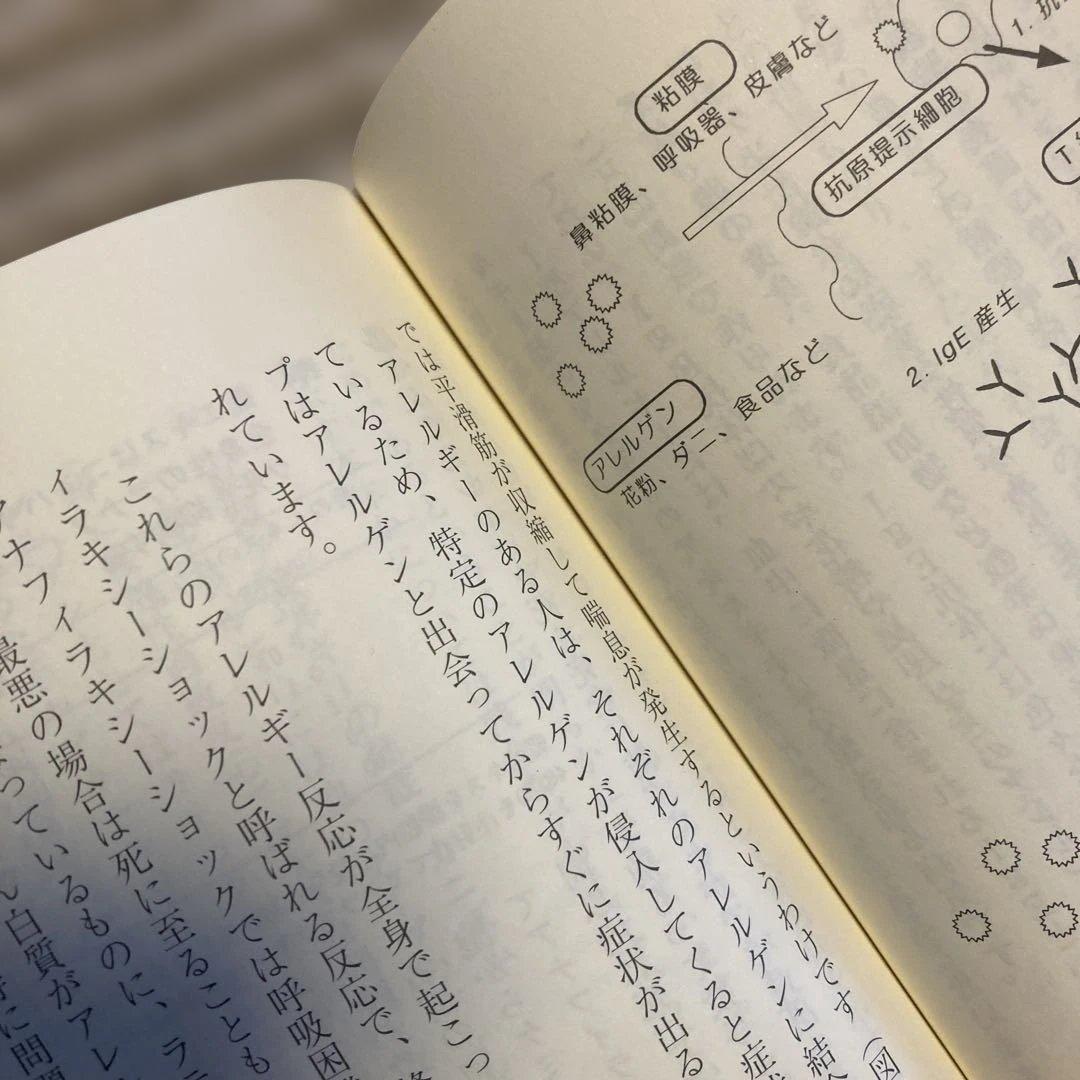 粘膜
鼻粘膜、呼吸器、皮膚など
抗原提示細胞
1. 抗
T
アレルゲン
花粉、ダニ、食品など
2. IgE 産生
では平滑筋が収縮して喘息が発生するというわけです(図
アレルギーのある人は、それぞれのアレルゲンに結合
ているため、特定のアレルゲンが侵入してくると症状
プはアレルゲンと出会ってからすぐに症状が出る
れています。
これらのアレルギー反応が全身で起こっ
イラキシーショックと呼ばれる反応で、
アナフィラキシーショックでは呼吸困
最悪の場合は死に至ることも
なっているものに、ラ
ん白質がアレ
に問題